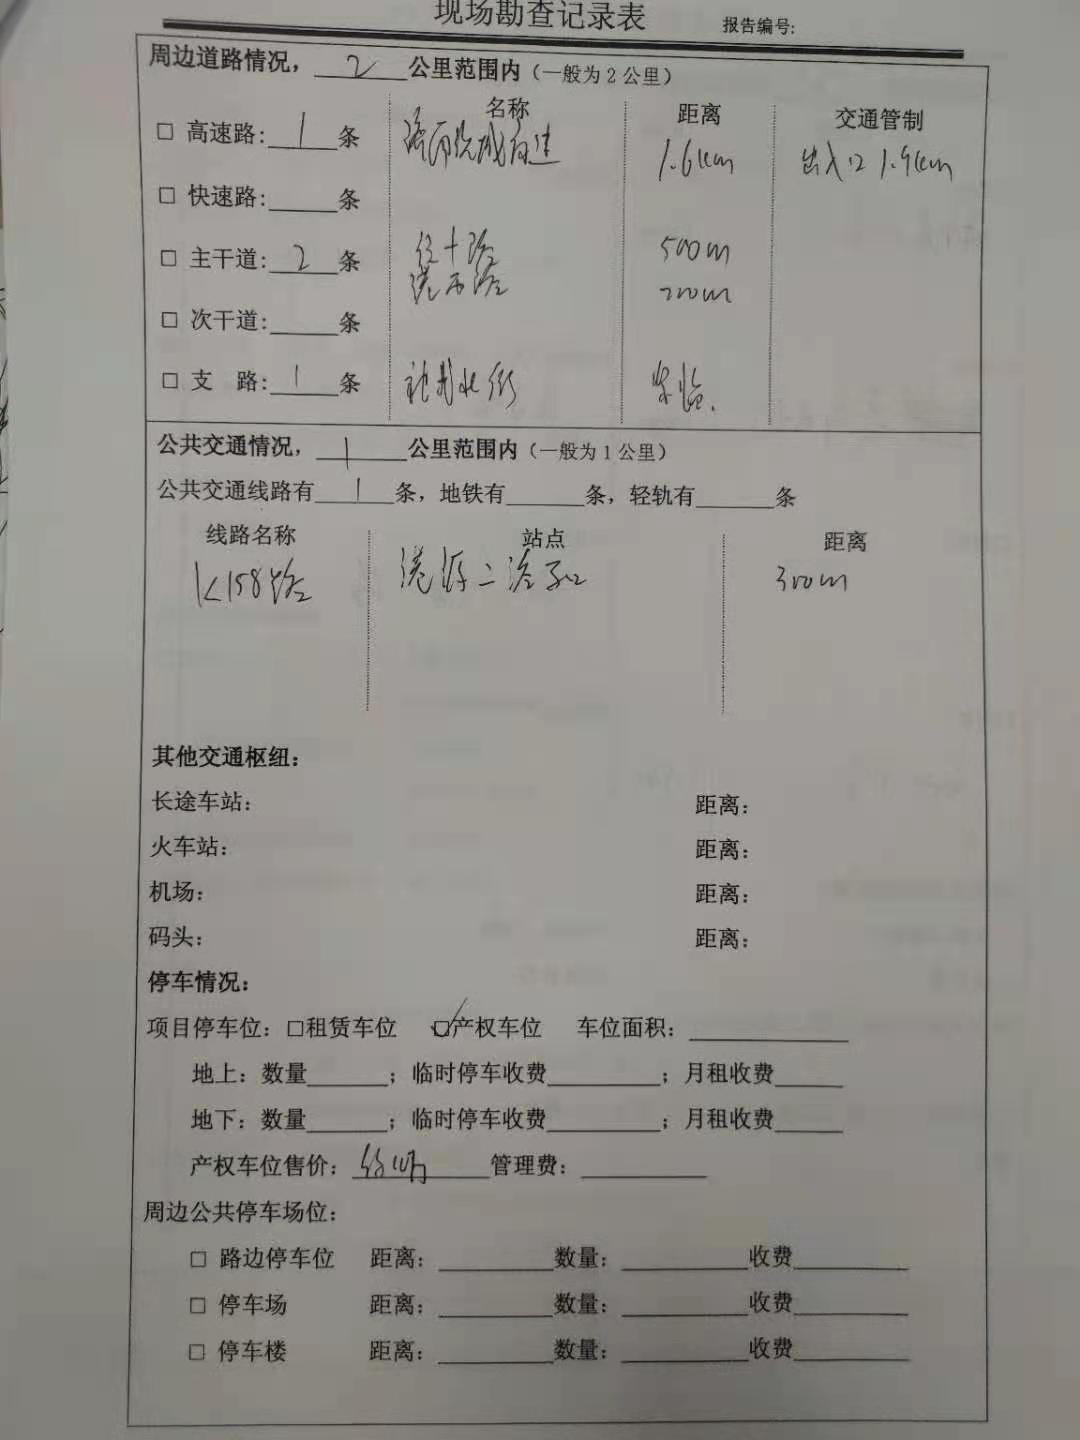 现场勘查记录表 报告编号:
周边道路情况，2公里范围内（一般为2公里）
名称 距离 交通管制
□ 高速路:1条 济南绕城高速 1.6km 出入口 1.9km
□ 快速路:____条
□ 主干道:2条 经十路 500m
港西路 200m
□ 次干道:____条
□ 支 路:1条 北街 紧临.
公共交通情况，1公里范围内（一般为1公里）
公共交通线路有1条，地铁有____条，轻轨有____条
线路名称 站点 距离
K158路 港源二路 300m
其他交通枢纽：
长途车站： 距离：
火车站： 距离：
机场： 距离：
码头： 距离：
停车情况：
项目停车位：□租赁车位 ☑产权车位 车位面积：____
地上：数量____；临时停车收费____；月租收费____
地下：数量____；临时停车收费____；月租收费____
产权车位售价：约10万 管理费：____
周边公共停车场位：
□ 路边停车位 距离：____数量：____收费____
□ 停车场 距离：____数量：____收费____
□ 停车楼 距离：____数量：____收费____